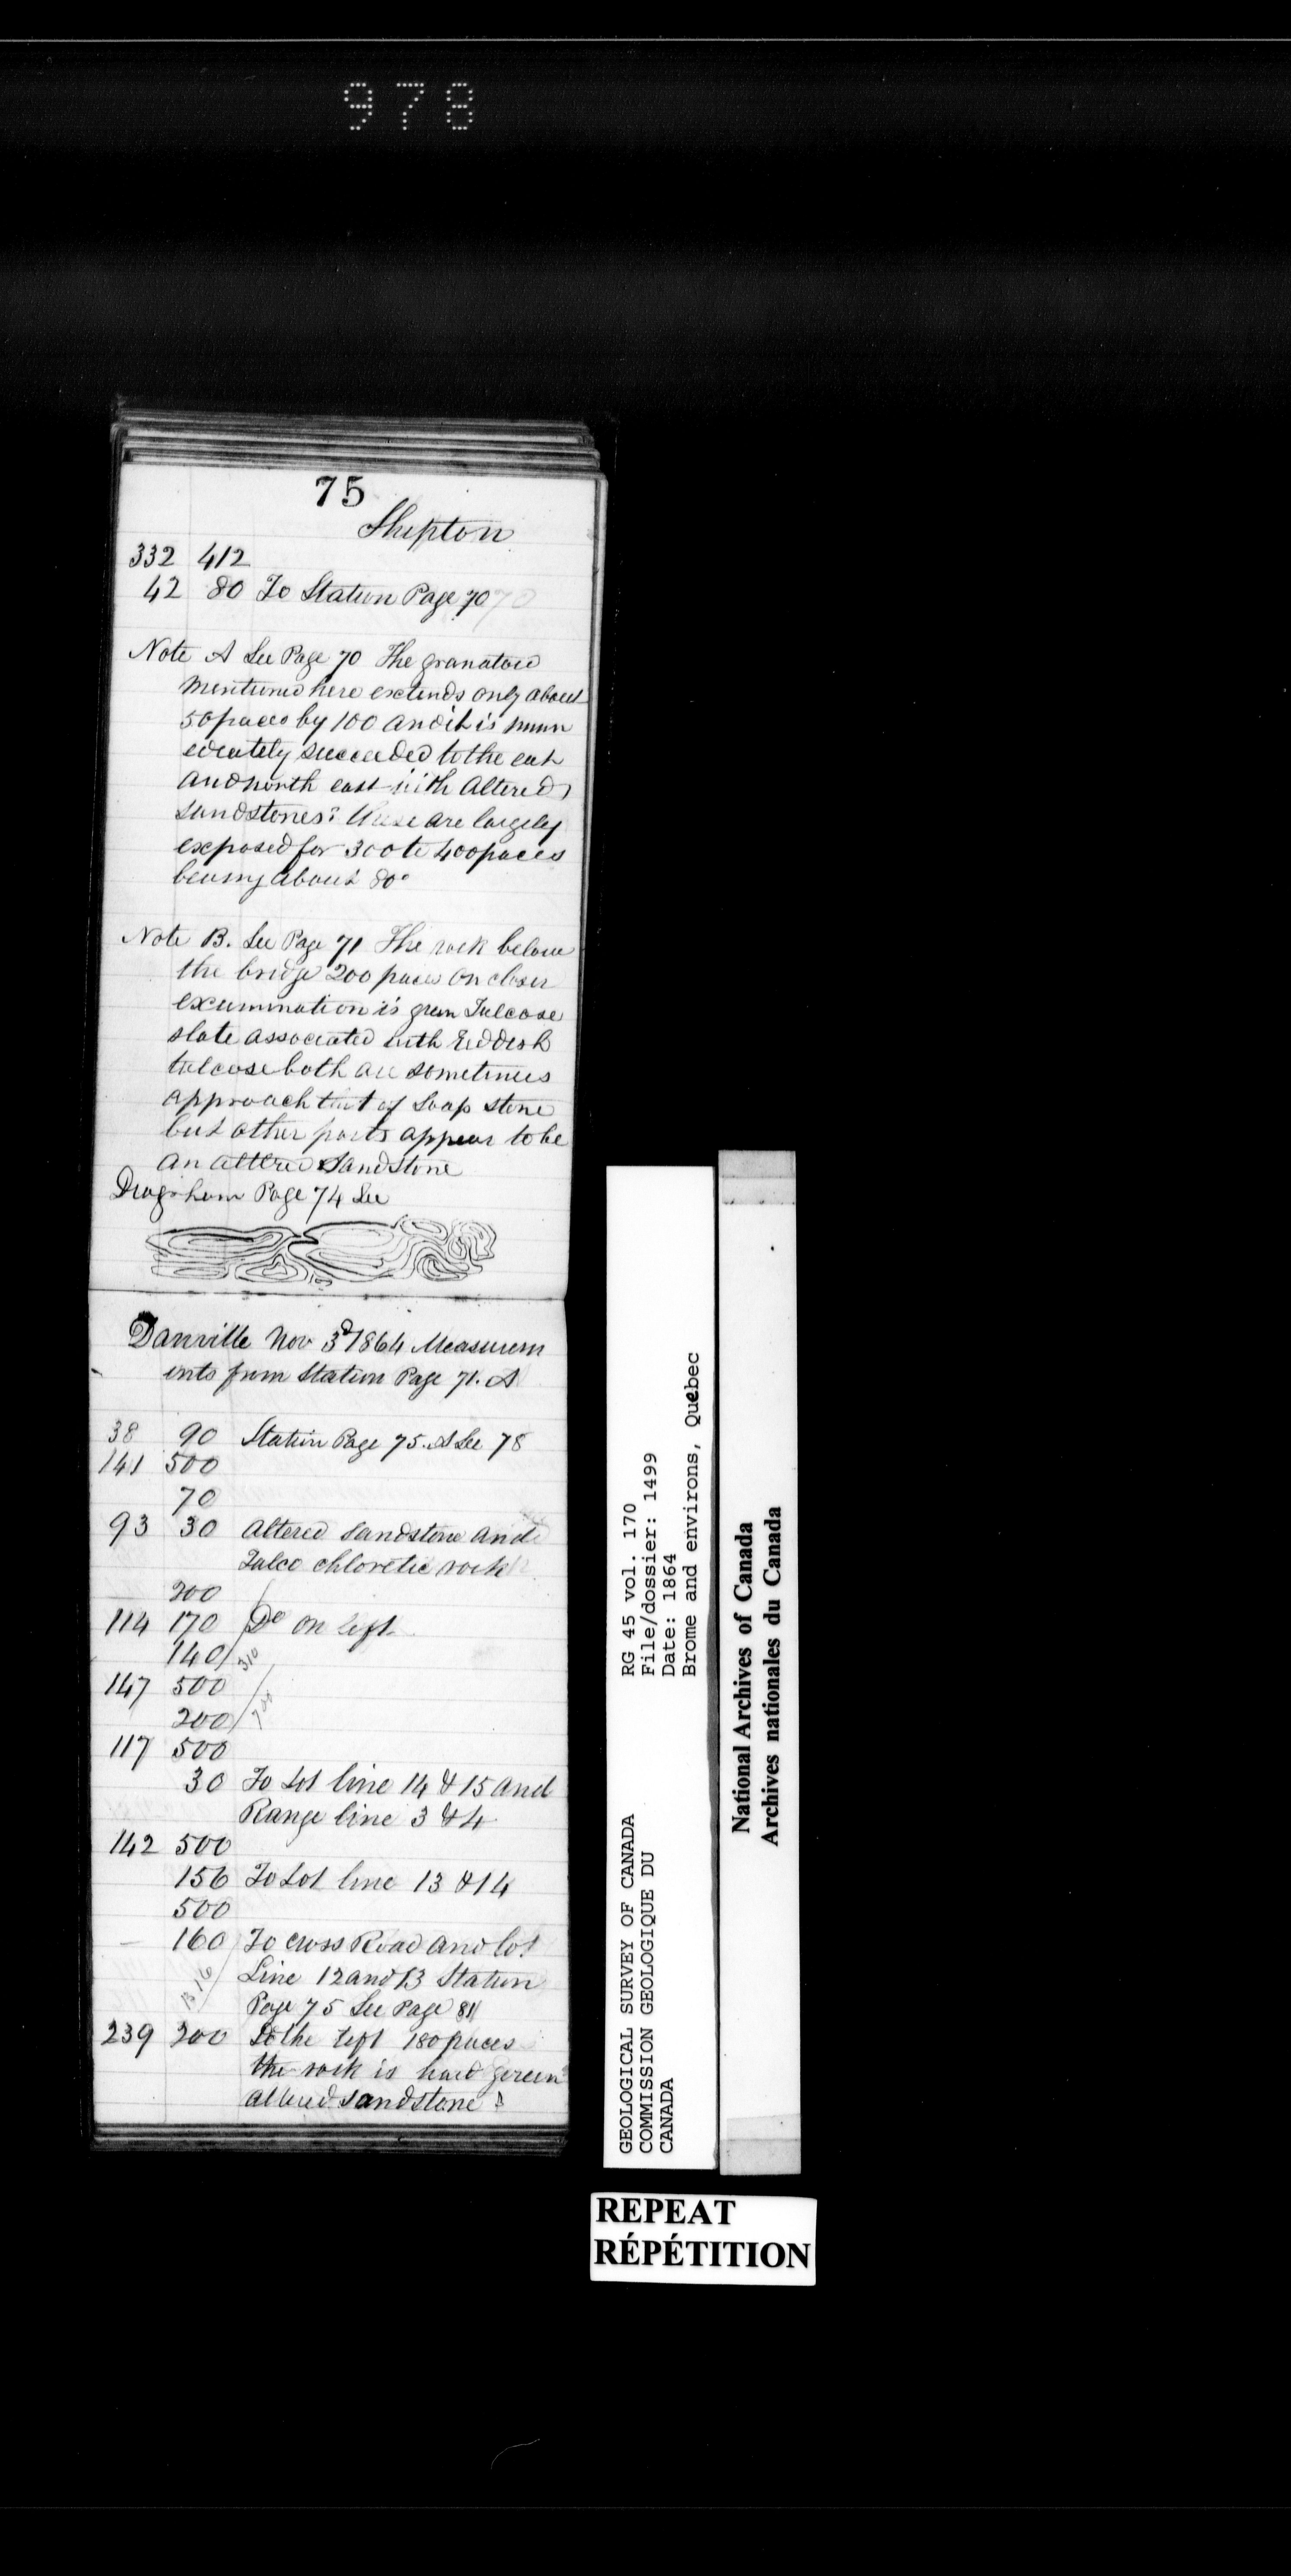 978
75
Shipton
332 412
42 80 To Station Page 70 70
Note A See Page 70 The granatoid
mentioned here extends only about
50 paces by 100 and it is imm
ediately succeeded to the east
and north east with Altered
sandstones: these are largely
exposed for 300 to 400 paces
bearing about 80°
Note B. See Page 71 The rock below
the bridge 200 paces on closer
examination is green Talcose
slate associated with reddish
talcose both are sometimes
approach that of Soap stone
but other parts appear to be
an altered Sandstone
Page 74 See
Danville Nov 3d 1864 Measurem
ents from Station Page 71. A
38 90 Station Page 75. A See 78
141 500
70
93 30 Altered Sandstone and
Talco chloretic rock
200
114 170 Do on left
140 310
147 500
200 700
117 500
30 To Lot line 14 & 15 and
Range line 3 & 4
142 500
156 To Lot line 13 & 14
500
160 To cross Road and lot
1316 Line 12 and 13 Station
Page 75 See Page 81
239 200 To the left 180 paces
the rock is hard green
altered sandstone
GEOLOGICAL SURVEY OF CANADA
COMMISSION GEOLOGIQUE DU
CANADA
RG 45 vol. 170
File/dossier: 1499
Date: 1864
Brome and environs, Quebec
National Archives of Canada
Archives nationales du Canada
REPEAT
RÉPÉTITION